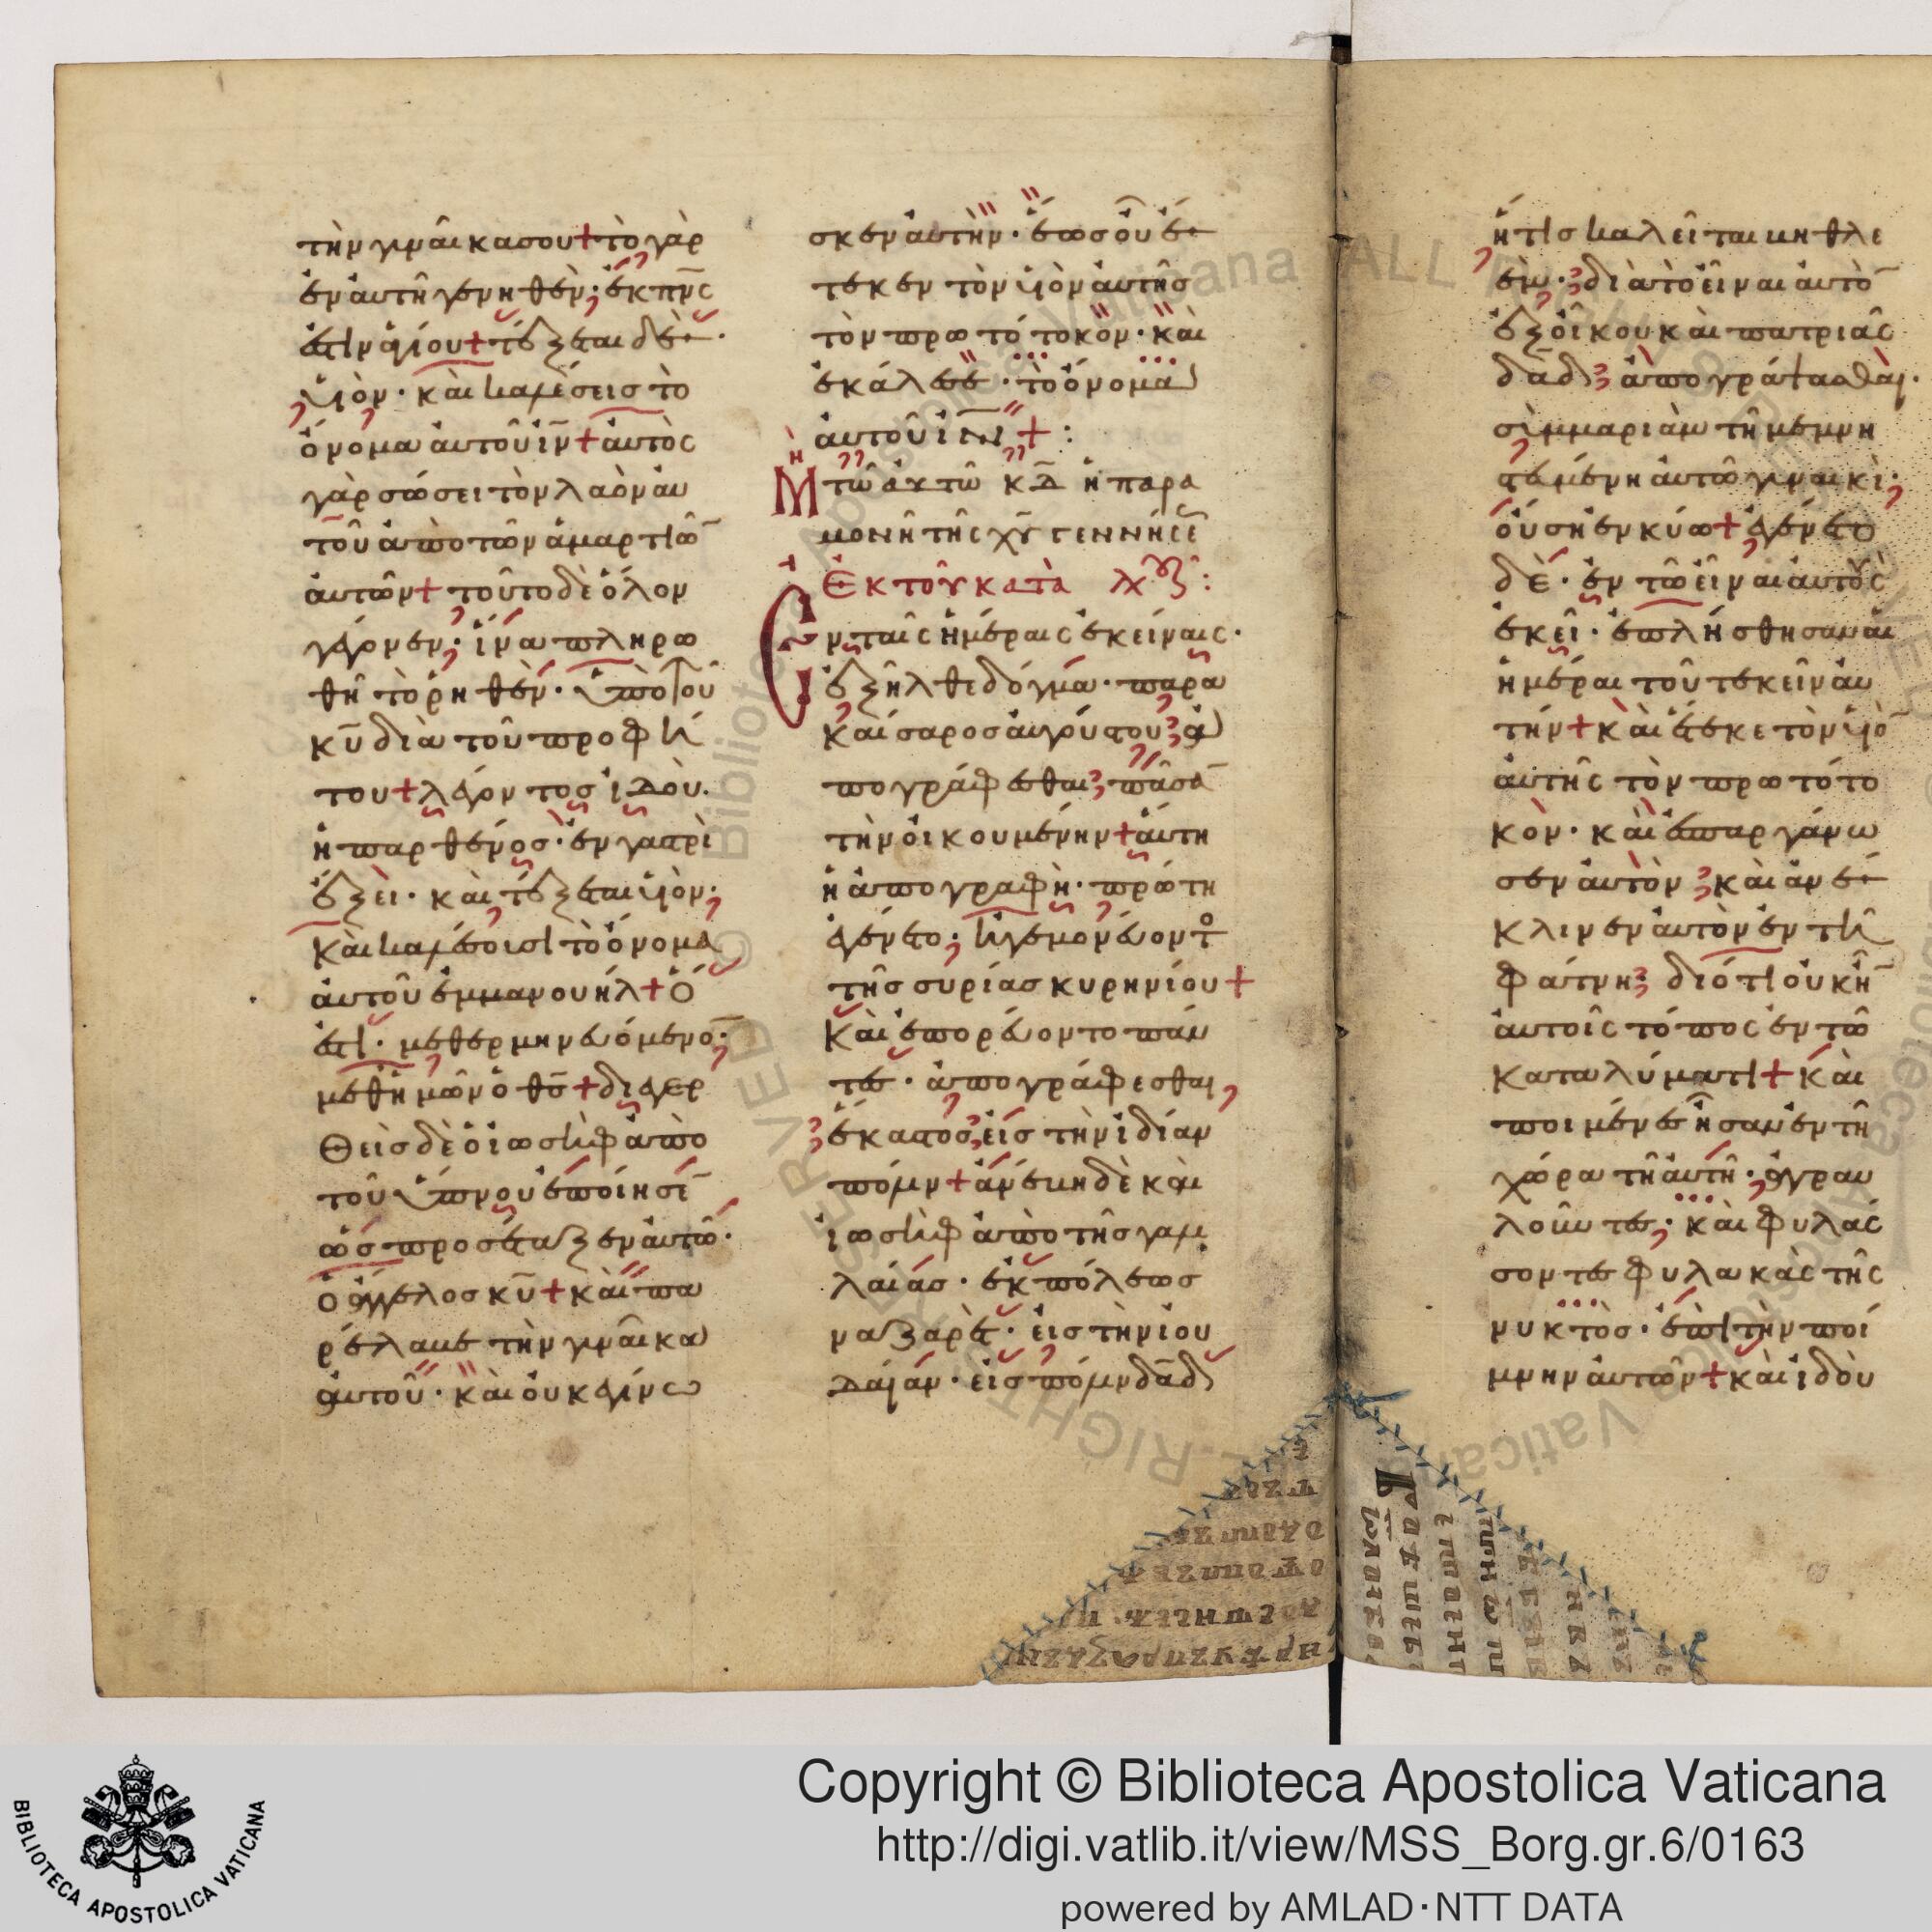 τὴν γυναῖκα σου + τὸ γὰρ
ἐν αὐτῆ γεννηθὲν· ἐκ πν̅ς
ἐστιν ἁγίου + τέξεται δὲ·
υἱὸν· καὶ καλέσεις τὸ
ὄνομα αὐτοῦ ι̅ν̅ + αὐτὸς
γὰρ σώσει τὸν λαὸν αὐ
τοῦ ἀπὸ τῶν ἁμαρτιῶ̅
αὐτῶν + τοῦτο δὲ ὅλον
γέγονεν· ἵνα πληρω
θῆ τὸ ῥηθὲν· ὑπὸ τοῦ
κ̅υ̅ διὰ τοῦ προφή
του + λέγοντος ἰδοὺ·
ἡ παρθένος· ἐν γαστρὶ
ἕξει· καὶ τέξεται υἱὸν·
καὶ καλέσουσι τὸ ὄνομα
αὐτοῦ ἐμμανουήλ + ὅ
ἐστι· μεθερμηνευόμενο̅·
μεθ ἡμῶν ὁ θ̅ς̅ + διεγερ
θεὶς δὲ ὁ ἰωσὴφ ἀπὸ
τοῦ ὕπνου ἐποίησε̅
ὡς προσέταξεν αὐτῶ·
ὁ ἄγγελος κ̅υ̅ + καὶ πα
ρέλαβε τὴν γυναῖκα
αὐτοῦ· καὶ οὐκ ἐγίνω
σκεν αὐτὴν· ἕως οὗ ἔ
τεκεν τὸν υἱὸν αὐτῆς
τὸν πρωτότοκον· καὶ
ἐκάλεσε· τὸ ὄνομα
αὐτοῦ ι̅ν̅ + :
Μη τῶ αυτῶ κ̅δ̅ ἡ παρα
μονὴ τῆς χ̅υ̅ γεννήσε̅
Ἐκ τοῦ κατὰ λουκ :
Ἐν ταῖς ἡμέραις ἐκείναις·
ἐξῆλθε δόγμα· παρα
καίσαρος αὐγούστου· ἀ
πογράφεσθαι· πᾶσα̅
τὴν οἰκουμένην + αὕτη
ἡ ἀπογραφὴ· πρώτη
ἐγένετο· ἡγεμονεύοντο
τῆς συρίας κυρηνίου +
καὶ ἐπορεύοντο πάν
τες· ἀπογράφεσθαι,
ἕκαστος εἰς τὴν ἰδίαν
πόλιν + ἀνέβη δὲ καὶ
ἰωσὴφ ἀπὸ τῆς γαλι
λαίας· ἐκ πόλεως
ναζαρὲτ· εἰς τὴν ἰου
δαίαν· εἰς πόλιν δα̅δ
ἥτις καλεῖται βηθλε
ὲμ· διὰ τὸ εἶναι αὐτὸ̅
ἐξ οἴκου καὶ πατριᾶς
δα̅δ· ἀπογράψασθαι·
σὺν μαριὰμ τῆ μεμνη
στευμένη αὐτῶ γυναικὶ·
οὔση ἐνκύω + ἐγένετο
δὲ· ἐν τῶ εἶναι αὐτοὺς
ἐκεῖ· ἐπλήσθησαν αἱ
ἡμέραι τοῦ τεκεῖν αὐ
τήν + καὶ ἔτεκε τὸν υἱὸ̅
αὐτῆς τὸν πρωτότο
κον· καὶ ἐσπαργάνω
σεν αὐτὸν· καὶ ἀνέ
κλινεν αὐτὸν ἐν τῆ
φάτνη· διότι οὐκ ἦ̅
αὐτοῖς τόπος ἐν τῶ
καταλύματι + καὶ
ποιμένες ἦσαν ἐν τῆ
χώρα τῆ αὐτῆ· ἀγραυ
λοῦντες· καὶ φυλάς
σοντες φυλακὰς τῆς
νυκτὸς· ἐπὶ τὴν ποί
μνην αὐτῶν + καὶ ἰδοὺ
Copyright © Biblioteca Apostolica Vaticana
http://digi.vatlib.it/view/MSS_Borg.gr.6/0163
powered by AMLAD·NTT DATA
BIBLIOTECA APOSTOLICA VATICANA